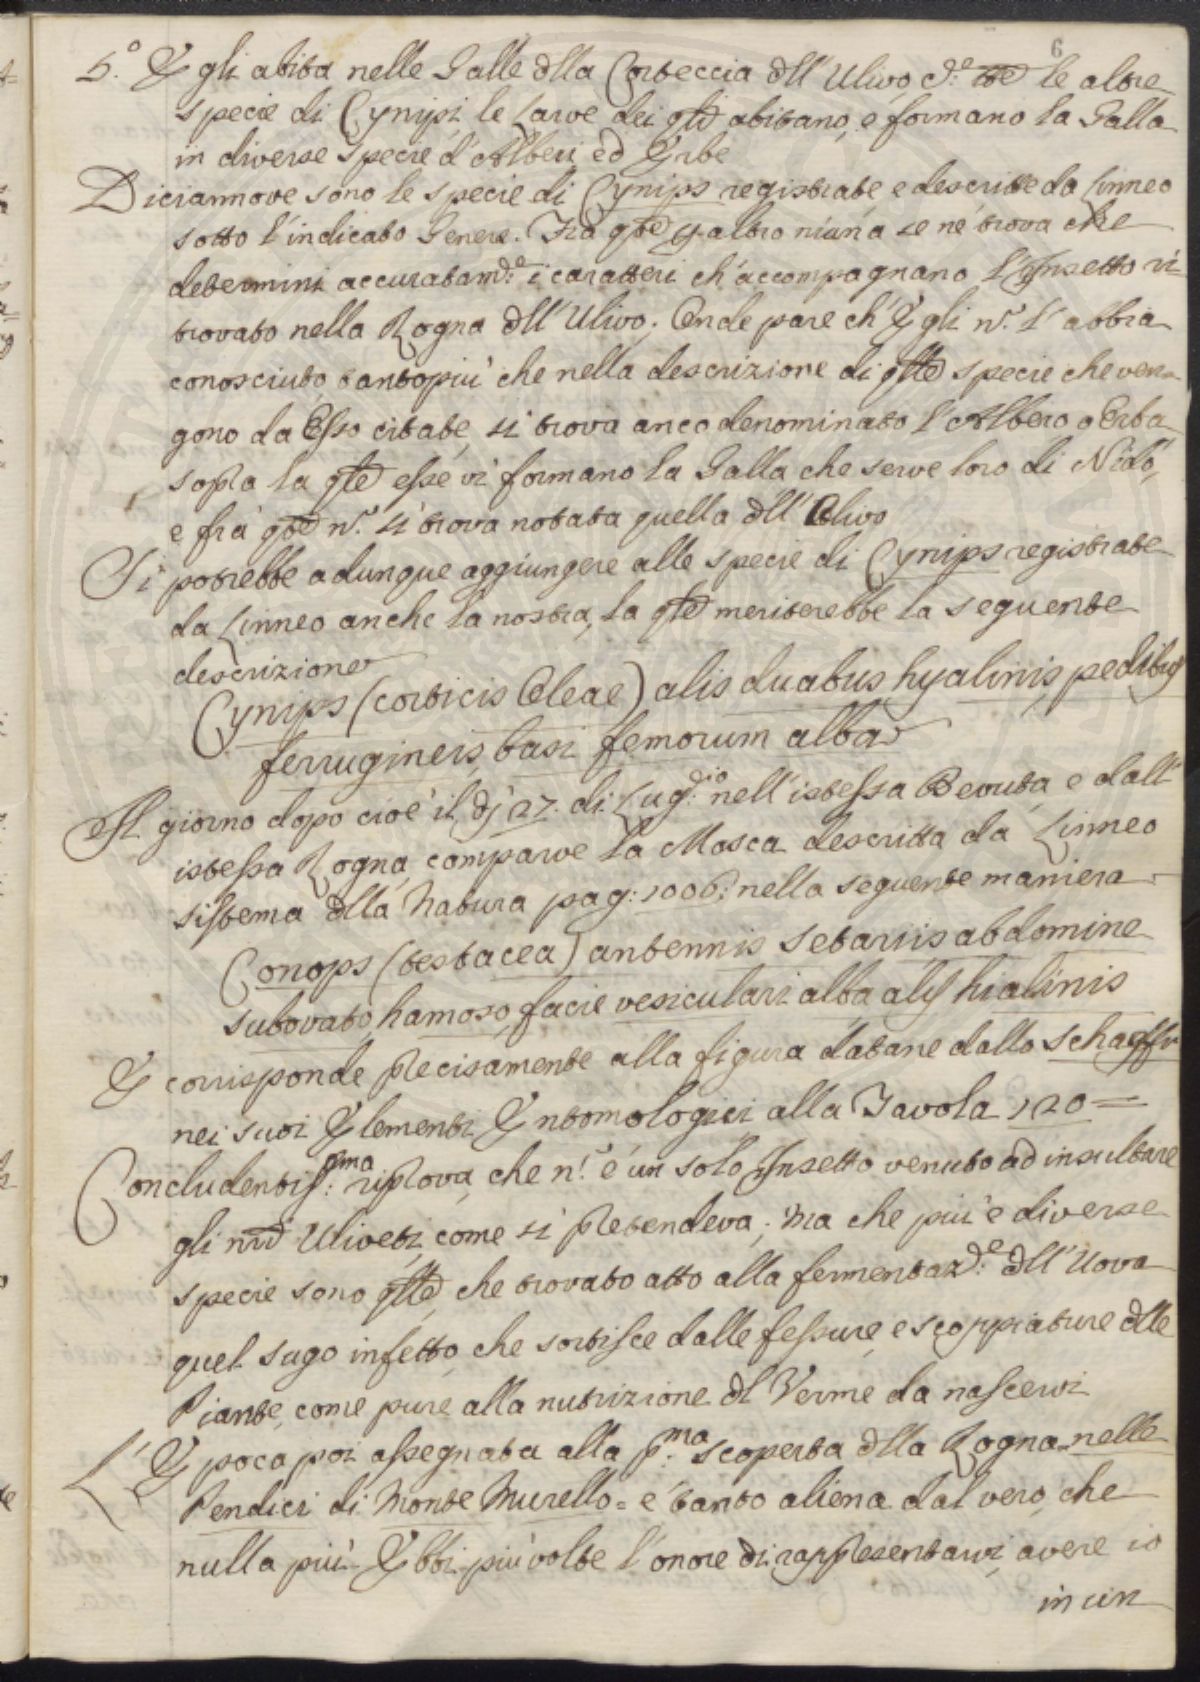 6
5.° Egli abita nelle Galle dlla Corteccia dll' Ulivo, e le altre
specie di Cynipi le Larve dei qli abitano, e formano la Galla
in diverse specie d'Alberi, ed Erbe
Diciannove sono le specie di Cynips registrate, e descritte da Linneo
sotto l'indicato Genere. Frà qste p altro niuna se ne trova che
determini accuratam.te i caratteri ch'accompagnano l'Insetto ri-
trovato nella Rogna dll' Ulivo; Onde pare ch'Egli n. l'abbia
conosciuto, tantopiù che nella descrizione di qlle specie che ven-
gono da Esso citate, si trova anco denominato l'Albero o Erba
sopra la qle esse vi formano la Galla che serve loro di Nido,
e frà qste n. si trova notata quella dll' Olivo
Si potrebbe adunque aggiungere alle specie di Cynips registrate
da Linneo anche la nostra, la qle meriterebbe la seguente
descrizione
Cynips (corticis Oleae) alis duabus hyalinis, pedibus
ferrugineis, basi femorum alba
Il giorno dopo cioè il dj 27. di Lug:dio nell'istessa Bevuta, e dall'
istessa Rogna, comparve la Mosca descritta da Linneo
sistema dlla Natura pag: 1006: nella seguente maniera
Conops (testacea) antennis setariis abdomine
subovato, hamoso, facie vesiculari alba, alis hialinis
E corrisponde precisamente alla figura datane dallo Schaeffer
nei suoi Elementi Entomologici alla Tavola 120=
Concludentiss:ma riprova, che n. è un solo Insetto venuto ad insultare
gli nri Uliveti, come si pretendeva; Ma che più e diverse
specie sono qlle, che trovato atto alla fermentaz.e dll' Uova
quel sugo infetto, che sortisce dalle fessure, e scoppiature dlle
Piante, come pure alla nutrizione dl Verme da nascervi
L'Epoca poi assegnata alla p.ma scoperta dlla Rogna = nelle
Pendici di Monte Murello = è tanto aliena dal vero, che
nulla più. Ebbi più volte l'onore di rappresentarvi, avere io
in un